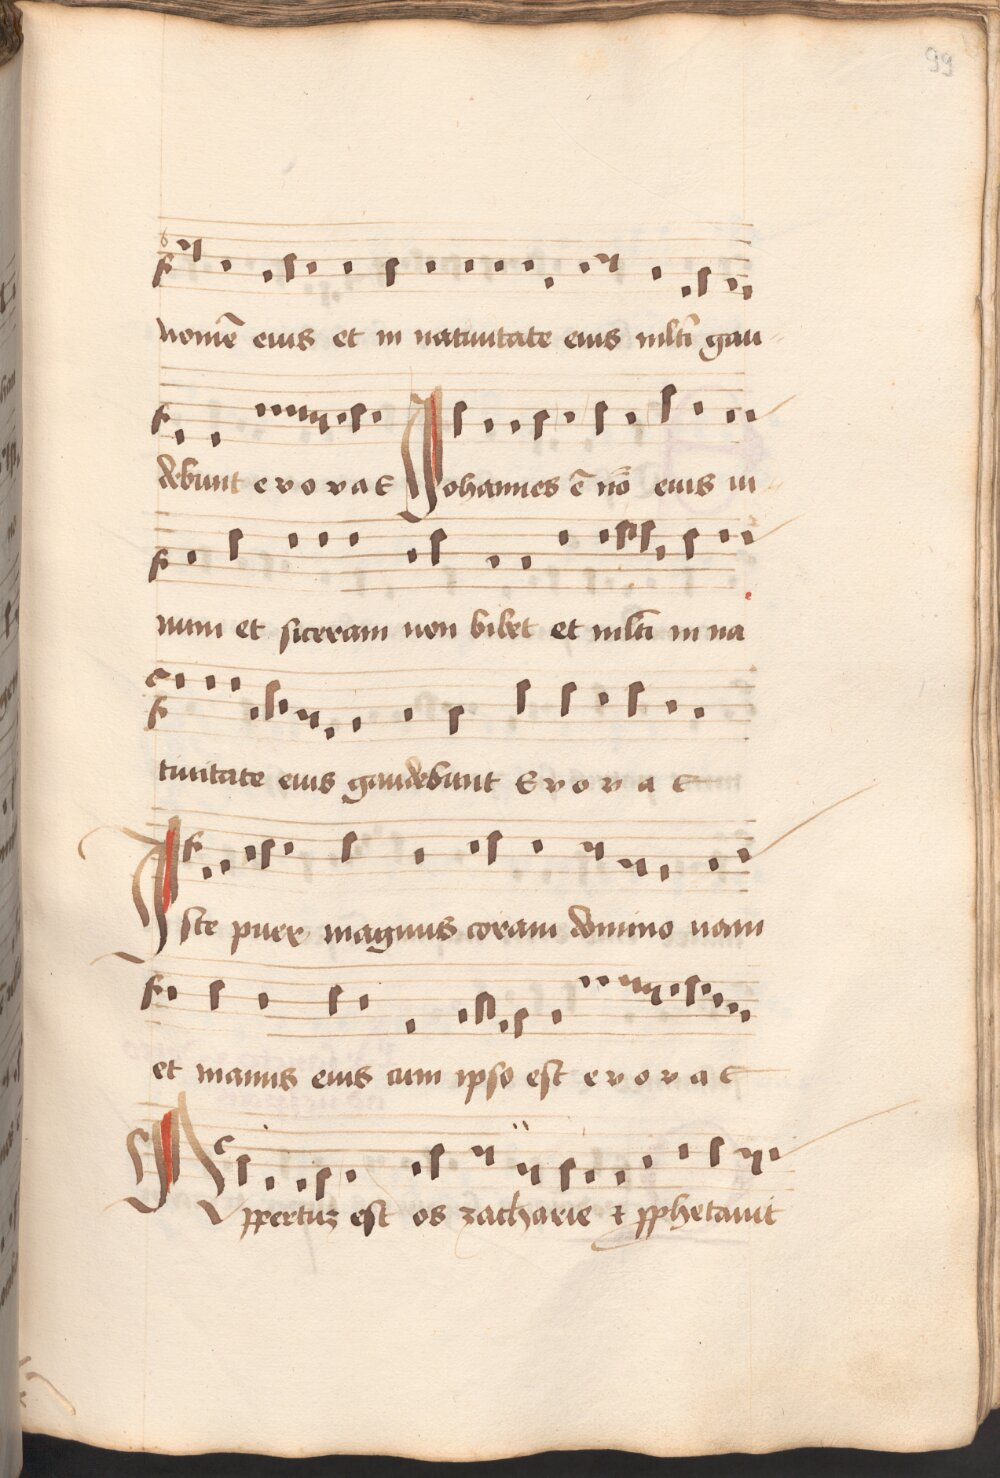 99
nomē eius et in natiuitate eius mlti gau
debunt e v o v a e Johannes ē nō eius ui
num et siceram non bibet et mlti in na
tiuitate eius gaudebunt e v o v a e
Iste puer magnus coram domino nam
et manus eius cum ipso est e v o v a e
Appertuz est os zacharie ⁊ pphetauit